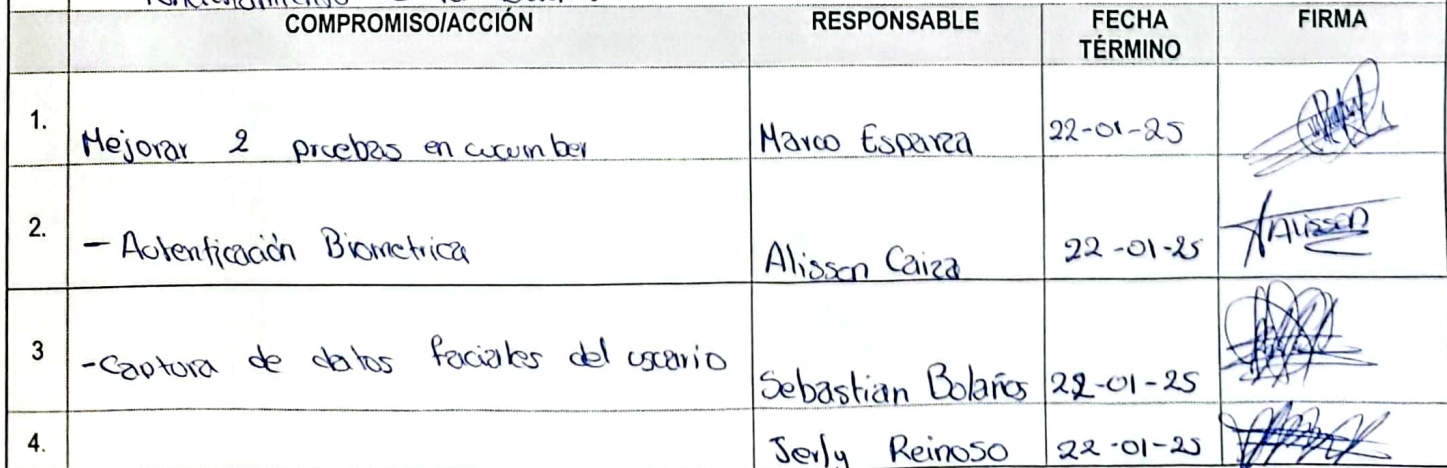 COMPROMISO/ACCIÓN RESPONSABLE FECHA TÉRMINO FIRMA
1. Mejorar 2 pruebas en cucumber Marco Esparza 22-01-25
2. - Autenticación Biometrica Alisson Caiza 22-01-25 Alisson
3 -Captura de datos faciales del usuario Sebastian Bolaños 22-01-25
4. Jerly Reinoso 22-01-25